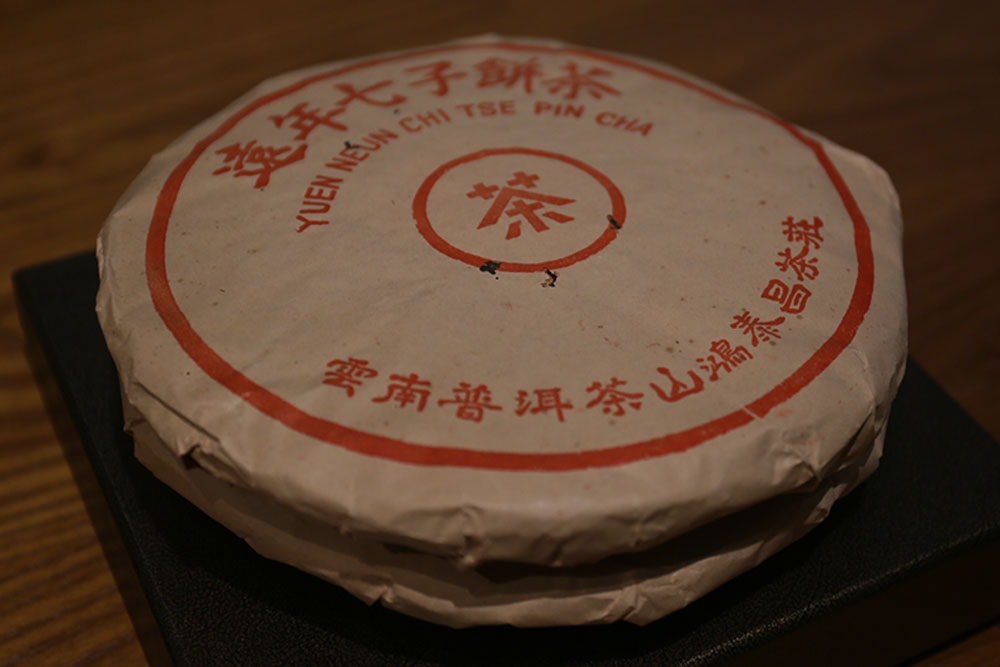 遠年七子餅茶
YUEN NEUN CHI TSE PIN CHA
茶
雲南普洱茶山鴻泰昌茶莊